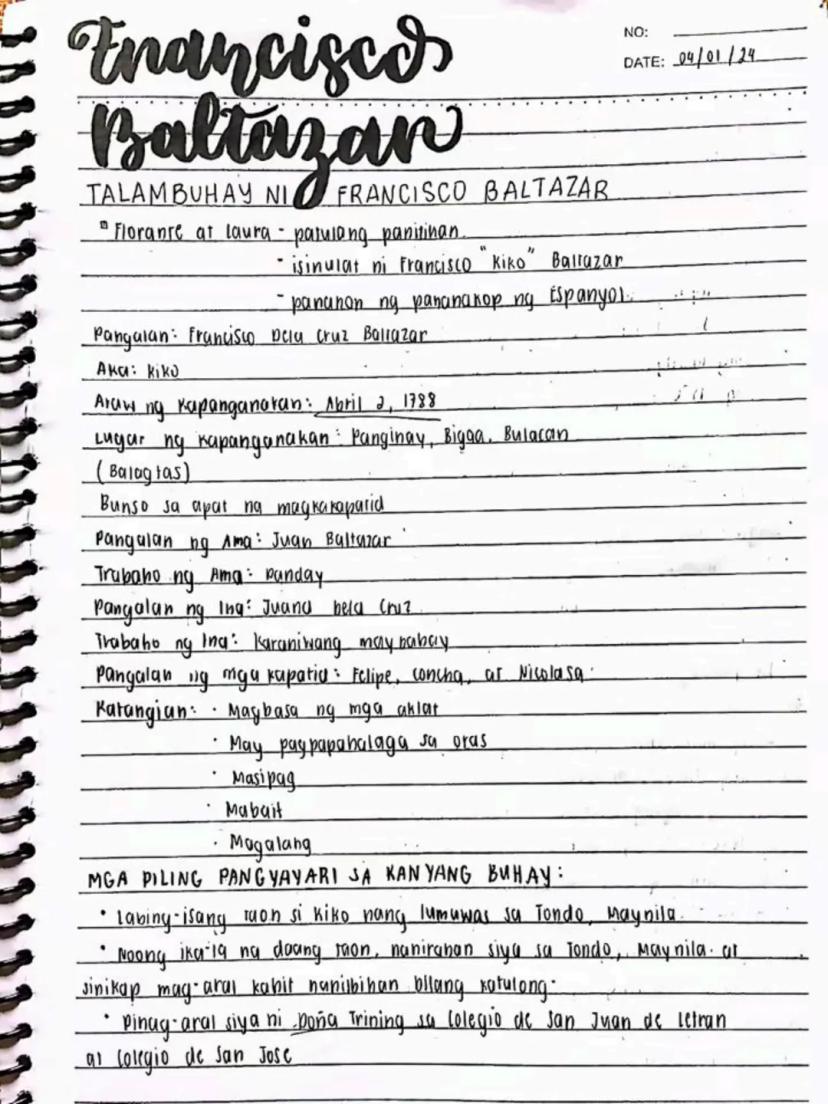 Francisco
NO:
DATE: 04/01/24
Baltazar
TALAMBUHAY NI FRANCISCO BALTAZAR
Florante at Laura - patulang panitikan
- isinulat ni Francisco "Kiko" Baltazar
- panahon ng pananakop ng Espanyol.
Pangalan: Francisco Dela Cruz Baltazar
Aka: Kiko
Araw ng Kapanganakan: Abril 2, 1788
Lugar ng kapanganakan: Panginay, Bigaa, Bulacan
(Balagtas)
Bunso sa apat na magkakapatid
Pangalan ng Ama: Juan Baltazar
Trabaho ng Ama: Panday
Pangalan ng Ina: Juana Dela Cruz
Trabaho ng Ina: Karaniwang maybahay
Pangalan ng mga kapatid: Felipe, Concha, at Nicolasa.
Katangian: • Magbasa ng mga aklat
• May pagpapahalaga sa oras
• Masipag
• Mabait
• Magalang
MGA PILING PANGYAYARI SA KANYANG BUHAY:
• Labing-isang taon si Kiko nang lumuwas sa Tondo, Maynila.
• Noong ika-19 na daang taon, nanirahan siya sa Tondo, Maynila. at
sinikap mag-aral kahit nanilbihan bilang katulong.
• Pinag-aral siya ni Doña Trining sa Colegio de San Juan de Letran
at Colegio de San Jose